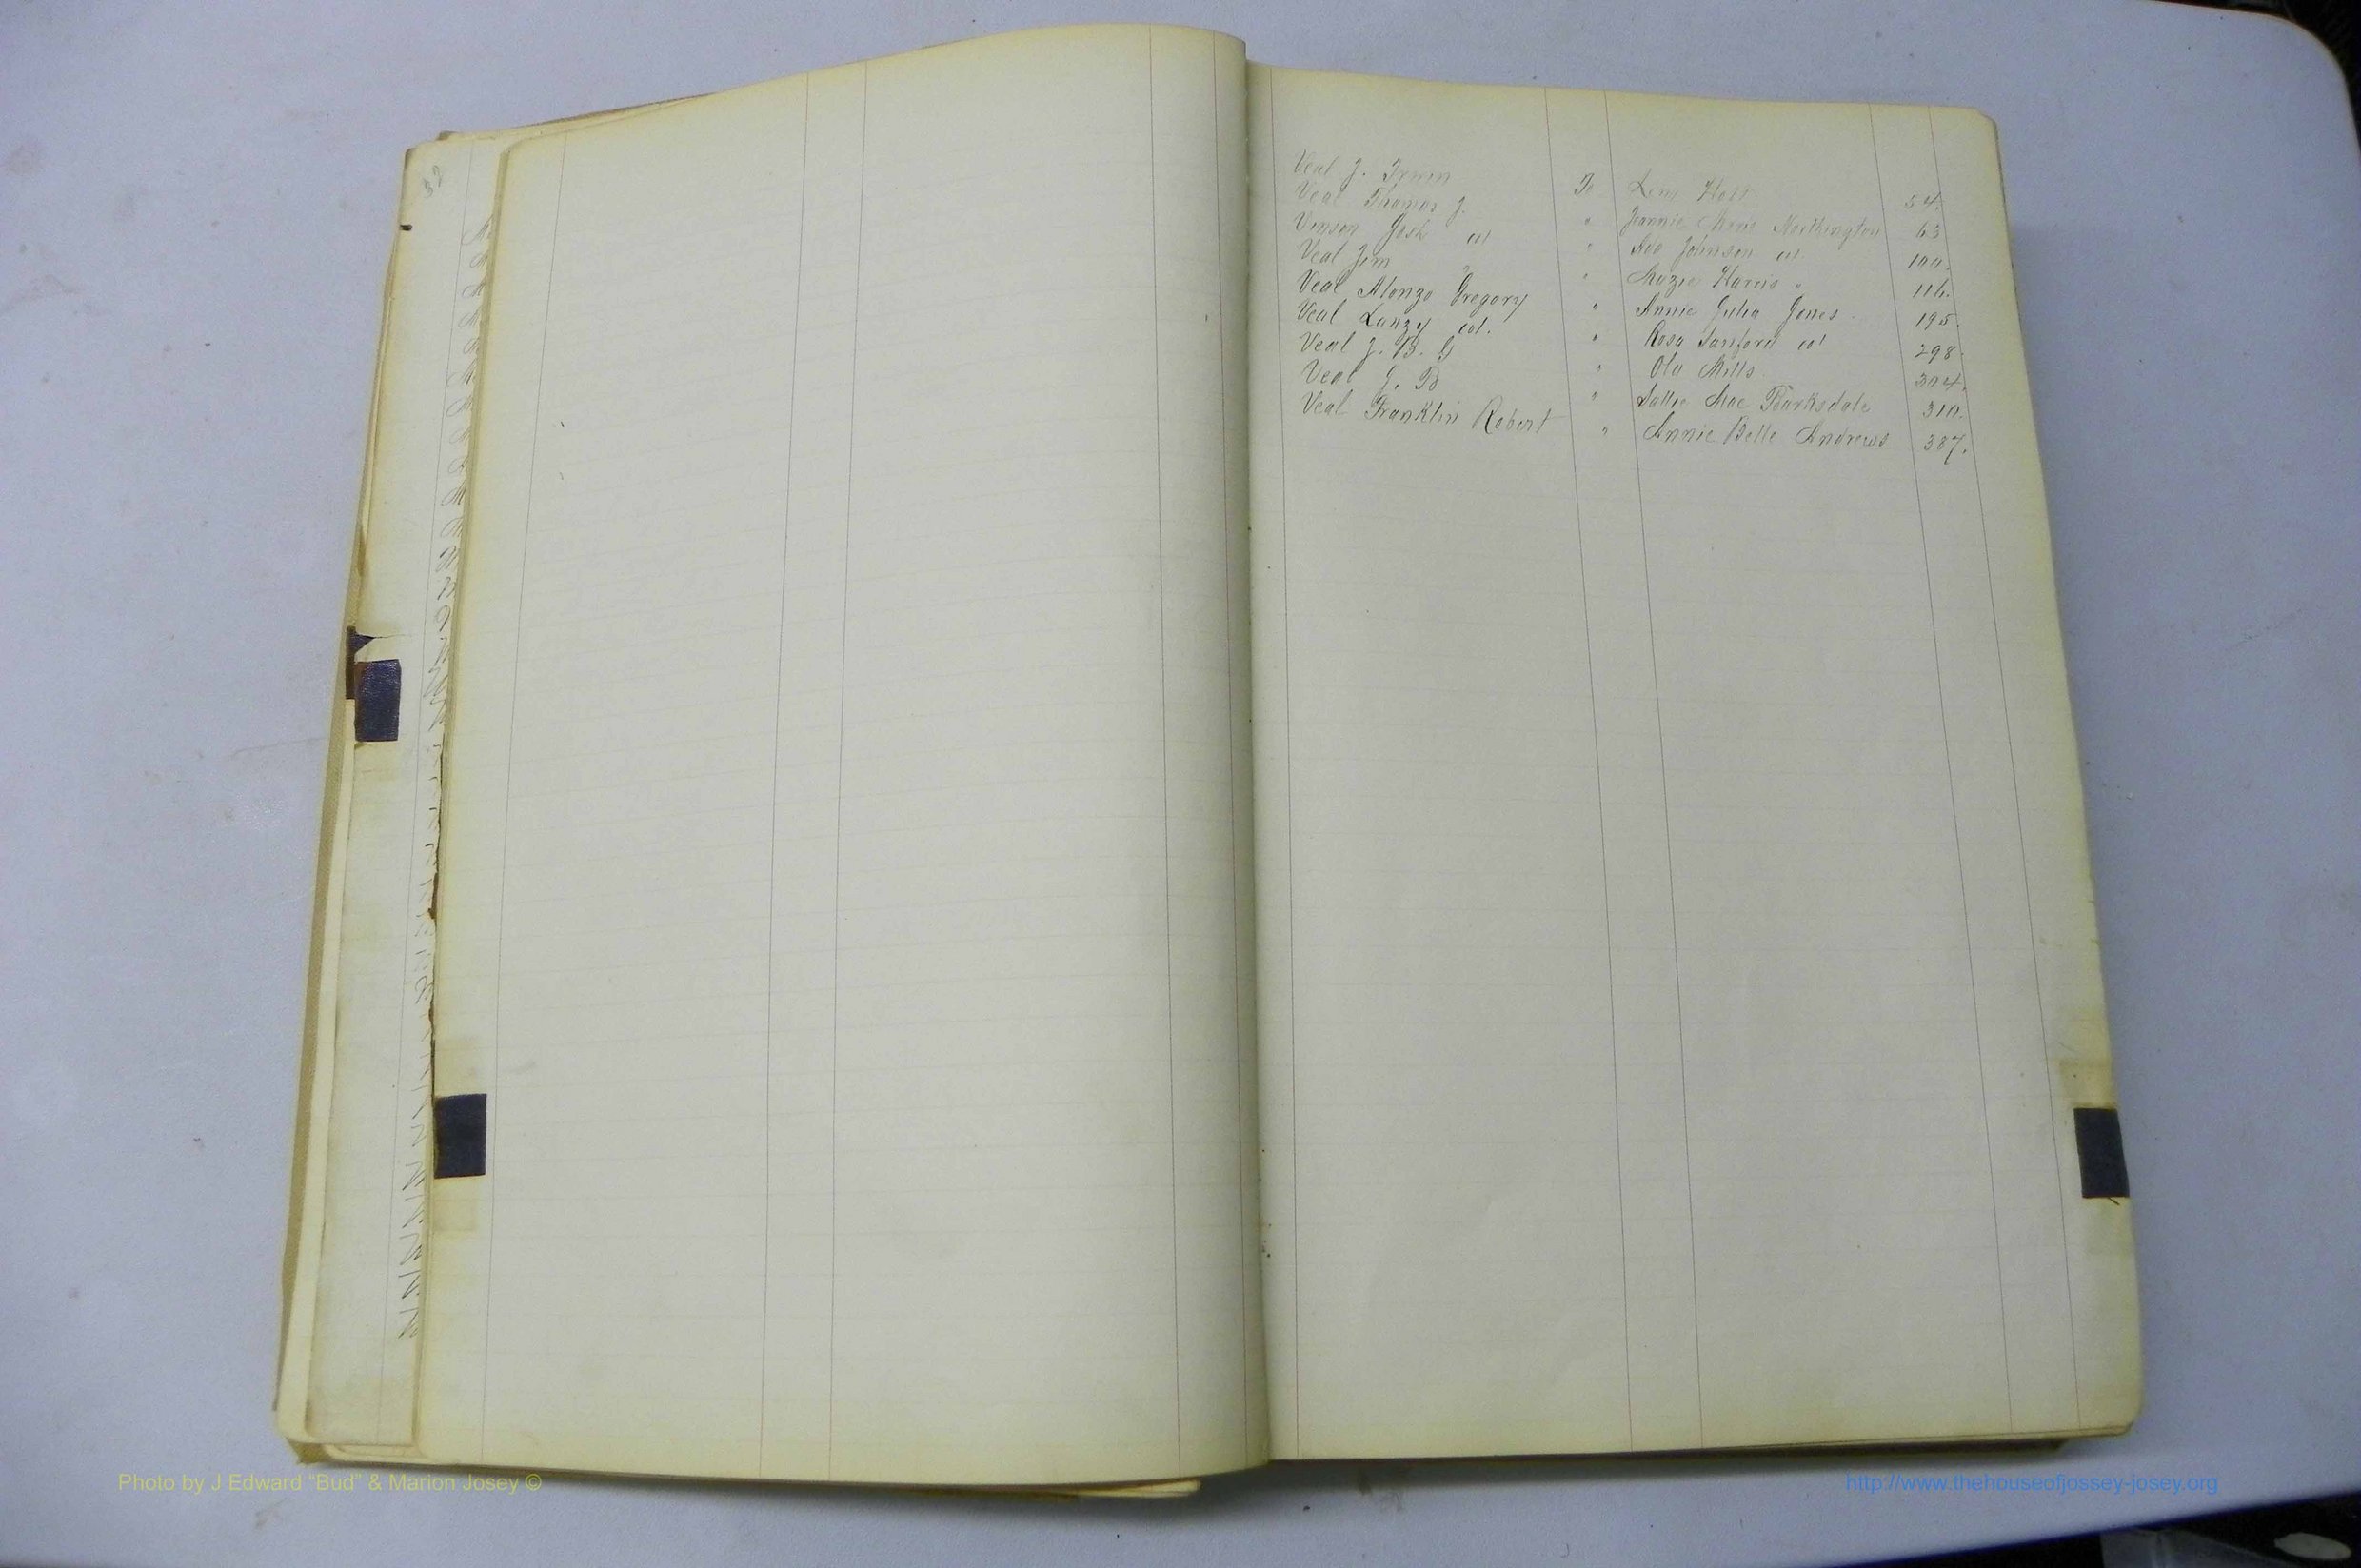 32
Veal J. Irwin To Lena Holt 54.
Veal Thomas J. " Jeannie Marie Northington 63
Vinson Josh col " Ada Johnson col. 100.
Veal Jim " " Mozie Harris " 116.
Veal Alonzo Gregory " Annie Julia Jones 195.
Veal Lanzy col. " Rosa Sanford col 298.
Veal J. B. G " Ola Mills 304.
Veal J. B " Sallie Mae Barksdale 310.
Veal Franklin Robert " Annie Belle Andrews 387.
Photo by J Edward “Bud” & Marion Josey ©
http://www.thehouseofjossey-josey.org